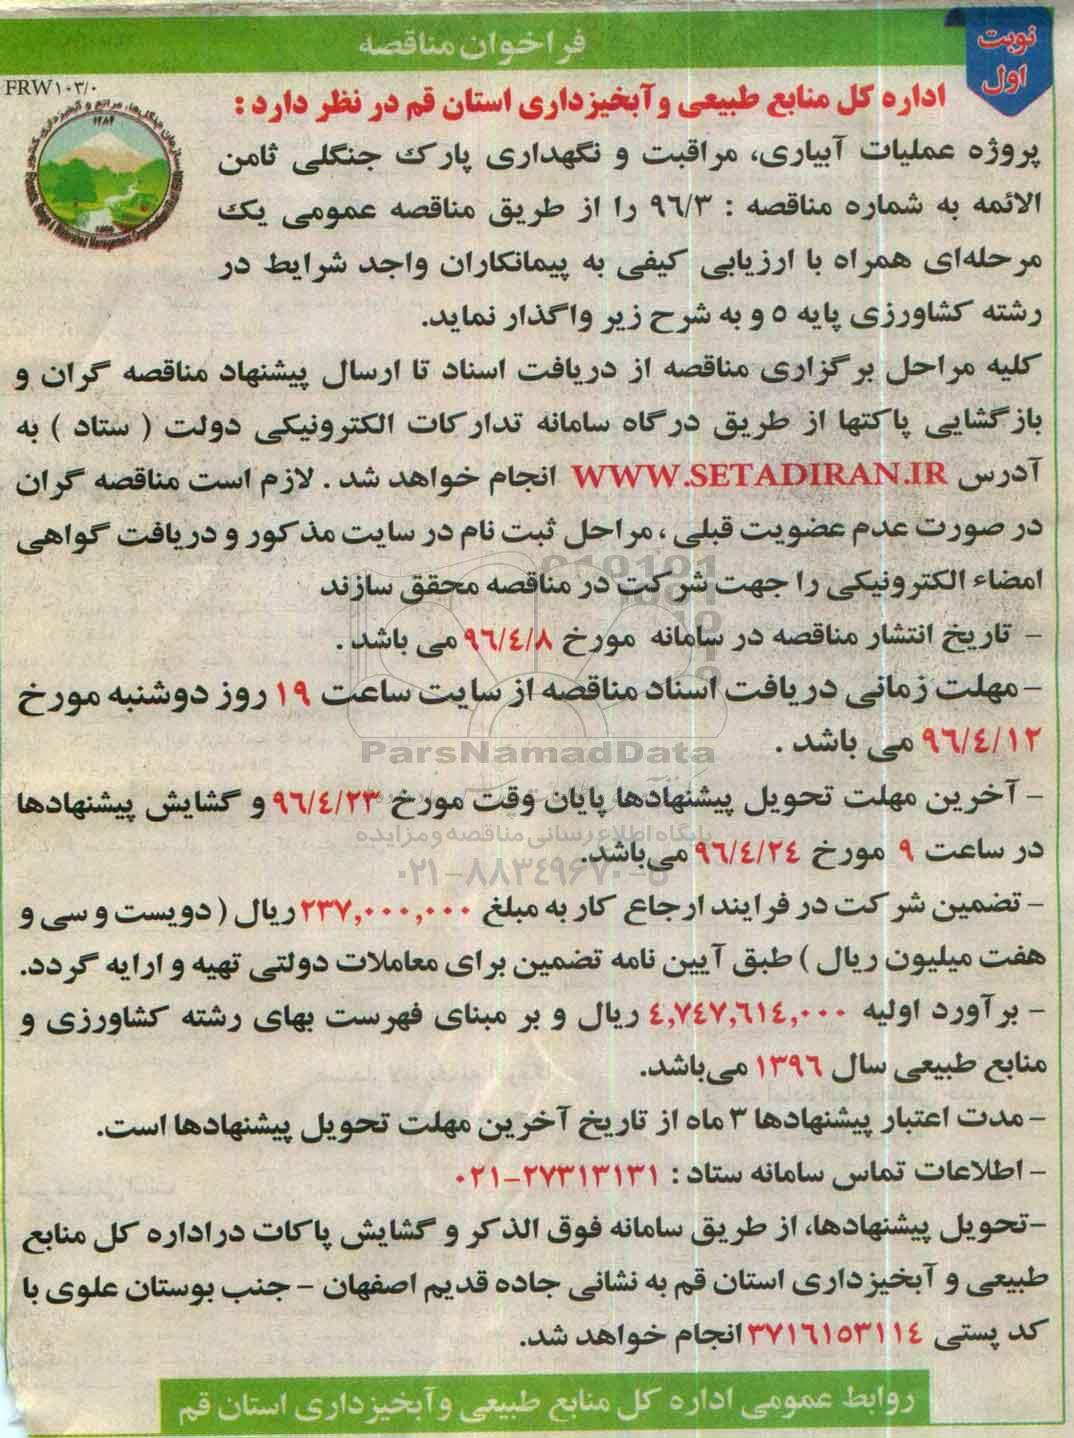 فراخوان مناقصه
نوبت
اول
FRW۱۰۳/۰
اداره کل منابع طبیعی وآبخیزداری استان قم در نظر دارد :
پروژه عملیات آبیاری، مراقبت و نگهداری پارک جنگلی ثامن
الائمه به شماره مناقصه : ۹۶/۳ را از طریق مناقصه عمومی یک
مرحله‌ای همراه با ارزیابی کیفی به پیمانکاران واجد شرایط در
رشته کشاورزی پایه ۵ و به شرح زیر واگذار نماید.
کلیه مراحل برگزاری مناقصه از دریافت اسناد تا ارسال پیشنهاد مناقصه گران و
بازگشایی پاکتها از طریق درگاه سامانه تدارکات الکترونیکی دولت ( ستاد ) به
آدرس WWW.SETADIRAN.IR انجام خواهد شد . لازم است مناقصه گران
در صورت عدم عضویت قبلی ، مراحل ثبت نام در سایت مذکور و دریافت گواهی
امضاء الکترونیکی را جهت شرکت در مناقصه محقق سازند
- تاریخ انتشار مناقصه در سامانه مورخ ۹۶/۴/۸ می باشد .
- مهلت زمانی دریافت اسناد مناقصه از سایت ساعت ۱۹ روز دوشنبه مورخ
۹۶/۴/۱۲ می باشد .
ParsNamadData
- آخرین مهلت تحویل پیشنهادها پایان وقت مورخ ۹۶/۴/۲۳ و گشایش پیشنهادها
پایگاه اطلاع رسانی مناقصه و مزایده
در ساعت ۹ مورخ ۹۶/۴/۲۴ می‌باشد.
۰۲۱-۸۸۳۴۹۶۷۰-۵
- تضمین شرکت در فرایند ارجاع کار به مبلغ ۲۳۷,۰۰۰,۰۰۰ ریال ( دویست و سی و
هفت میلیون ریال ) طبق آیین نامه تضمین برای معاملات دولتی تهیه و ارایه گردد.
- برآورد اولیه ۴,۷۴۷,۶۱۴,۰۰۰ ریال و بر مبنای فهرست بهای رشته کشاورزی و
منابع طبیعی سال ۱۳۹۶ می‌باشد.
- مدت اعتبار پیشنهادها ۳ ماه از تاریخ آخرین مهلت تحویل پیشنهادها است.
- اطلاعات تماس سامانه ستاد : ۰۲۱-۲۷۳۱۳۱۳۱
-تحویل پیشنهادها، از طریق سامانه فوق الذکر و گشایش پاکات دراداره کل منابع
طبیعی و آبخیزداری استان قم به نشانی جاده قدیم اصفهان - جنب بوستان علوی با
کد پستی ۳۷۱۶۱۵۳۱۱۴ انجام خواهد شد.
روابط عمومی اداره کل منابع طبیعی وآبخیزداری استان قم